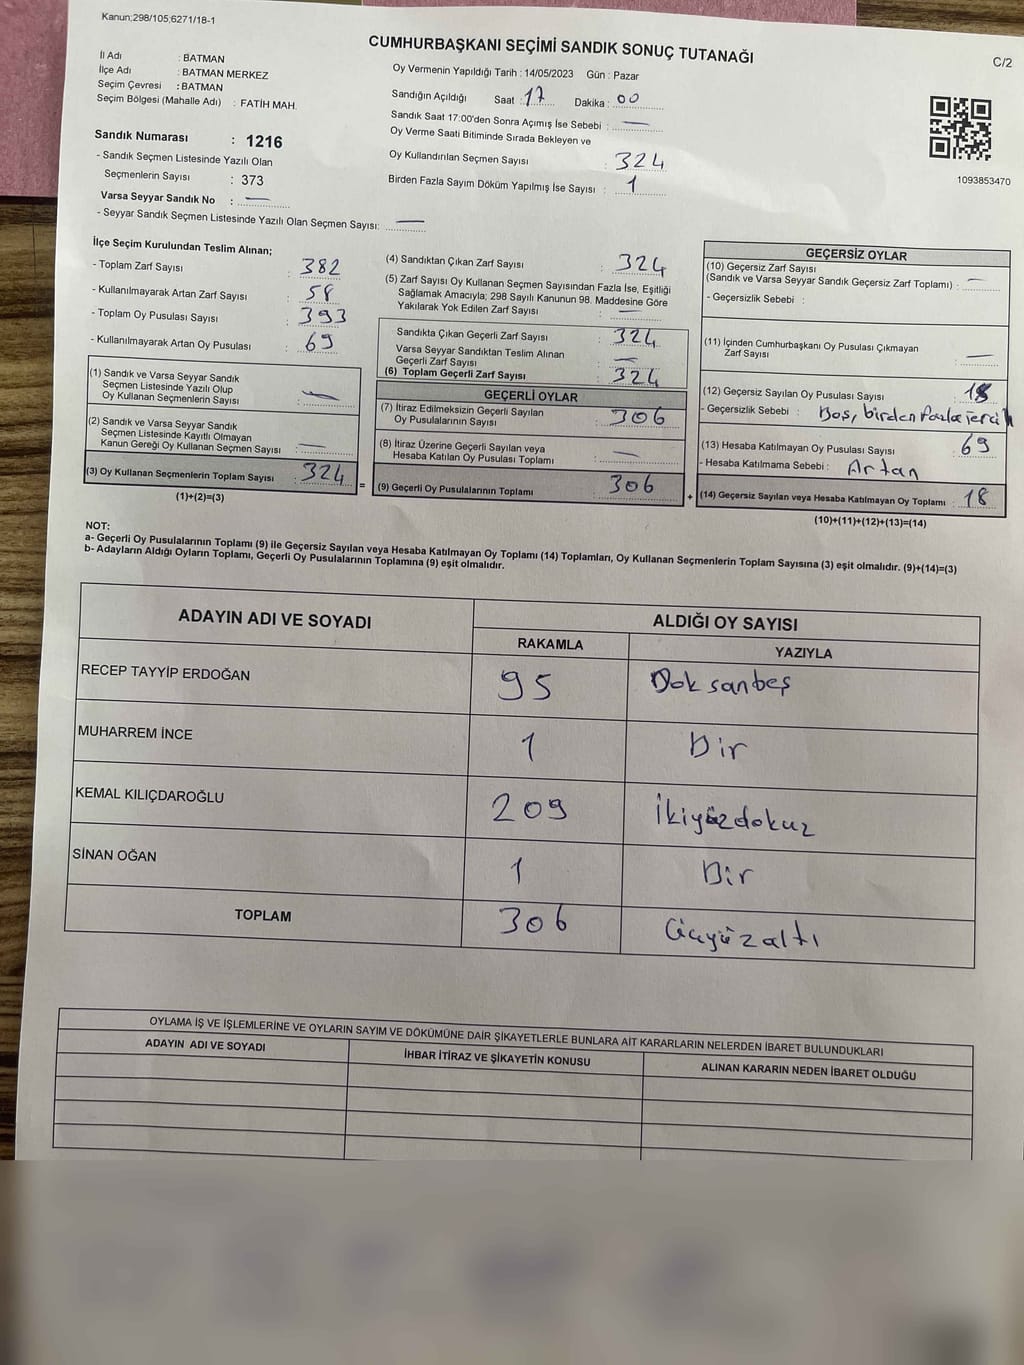 Kanun;298/105,6271/18-1
CUMHURBAŞKANI SEÇİMİ SANDIK SONUÇ TUTANAĞI
C/2
İl Adı : BATMAN
İlçe Adı : BATMAN MERKEZ
Seçim Çevresi : BATMAN
Seçim Bölgesi (Mahalle Adı) : FATİH MAH.
Sandık Numarası : 1216
- Sandık Seçmen Listesinde Yazılı Olan
Seçmenlerin Sayısı : 373
Varsa Seyyar Sandık No : —
- Seyyar Sandık Seçmen Listesinde Yazılı Olan Seçmen Sayısı: —
Oy Vermenin Yapıldığı Tarih : 14/05/2023 Gün : Pazar
Sandığın Açıldığı Saat : 17 Dakika : 00
Sandık Saat 17:00'den Sonra Açımış İse Sebebi : —
Oy Verme Saati Bitiminde Sırada Bekleyen ve
Oy Kullandırılan Seçmen Sayısı : 324
Birden Fazla Sayım Döküm Yapılmış İse Sayısı : 1
1093853470
İlçe Seçim Kurulundan Teslim Alınan;
- Toplam Zarf Sayısı : 382
- Kullanılmayarak Artan Zarf Sayısı : 58
- Toplam Oy Pusulası Sayısı : 393
- Kullanılmayarak Artan Oy Pusulası : 69
(1) Sandık ve Varsa Seyyar Sandık
Seçmen Listesinde Yazılı Olup
Oy Kullanan Seçmenlerin Sayısı : —
(2) Sandık ve Varsa Seyyar Sandık
Seçmen Listesinde Kayıtlı Olmayan
Kanun Gereği Oy Kullanan Seçmen Sayısı : —
(3) Oy Kullanan Seçmenlerin Toplam Sayısı : 324 =
(1)+(2)=(3)
(4) Sandıktan Çıkan Zarf Sayısı : 324
(5) Zarf Sayısı Oy Kullanan Seçmen Sayısından Fazla İse, Eşitliği
Sağlamak Amacıyla; 298 Sayılı Kanunun 98. Maddesine Göre
Yakılarak Yok Edilen Zarf Sayısı : —
Sandıkta Çıkan Geçerli Zarf Sayısı : 324
Varsa Seyyar Sandıktan Teslim Alınan
Geçerli Zarf Sayısı : —
(6) Toplam Geçerli Zarf Sayısı : 324
GEÇERLİ OYLAR
(7) İtiraz Edilmeksizin Geçerli Sayılan
Oy Pusulalarının Sayısı : 306
(8) İtiraz Üzerine Geçerli Sayılan veya
Hesaba Katılan Oy Pusulası Toplamı : —
(9) Geçerli Oy Pusulalarının Toplamı : 306 +
GEÇERSİZ OYLAR
(10) Geçersiz Zarf Sayısı
(Sandık ve Varsa Seyyar Sandık Geçersiz Zarf Toplamı) : —
- Geçersizlik Sebebi :
(11) İçinden Cumhurbaşkanı Oy Pusulası Çıkmayan
Zarf Sayısı : —
(12) Geçersiz Sayılan Oy Pusulası Sayısı : 18
- Geçersizlik Sebebi : Boş, birden fazla tercih
(13) Hesaba Katılmayan Oy Pusulası Sayısı : 69
- Hesaba Katılmama Sebebi : Artan
(14) Geçersiz Sayılan veya Hesaba Katılmayan Oy Toplamı : 18
(10)+(11)+(12)+(13)=(14)
NOT:
a- Geçerli Oy Pusulalarının Toplamı (9) ile Geçersiz Sayılan veya Hesaba Katılmayan Oy Toplamı (14) Toplamları, Oy Kullanan Seçmenlerin Toplam Sayısına (3) eşit olmalıdır. (9)+(14)=(3)
b- Adayların Aldığı Oyların Toplamı, Geçerli Oy Pusulalarının Toplamına (9) eşit olmalıdır.
ADAYIN ADI VE SOYADI
ALDIĞI OY SAYISI
RAKAMLA YAZIYLA
RECEP TAYYİP ERDOĞAN 95 Doksanbeş
MUHARREM İNCE 1 Bir
KEMAL KILIÇDAROĞLU 209 İkiyüzdokuz
SİNAN OĞAN 1 Bir
TOPLAM 306 Üçyüzaltı
OYLAMA İŞ VE İŞLEMLERİNE VE OYLARIN SAYIM VE DÖKÜMÜNE DAİR ŞİKAYETLERLE BUNLARA AİT KARARLARIN NELERDEN İBARET BULUNDUKLARI
ADAYIN ADI VE SOYADI İHBAR İTİRAZ VE ŞİKAYETİN KONUSU ALINAN KARARIN NEDEN İBARET OLDUĞU